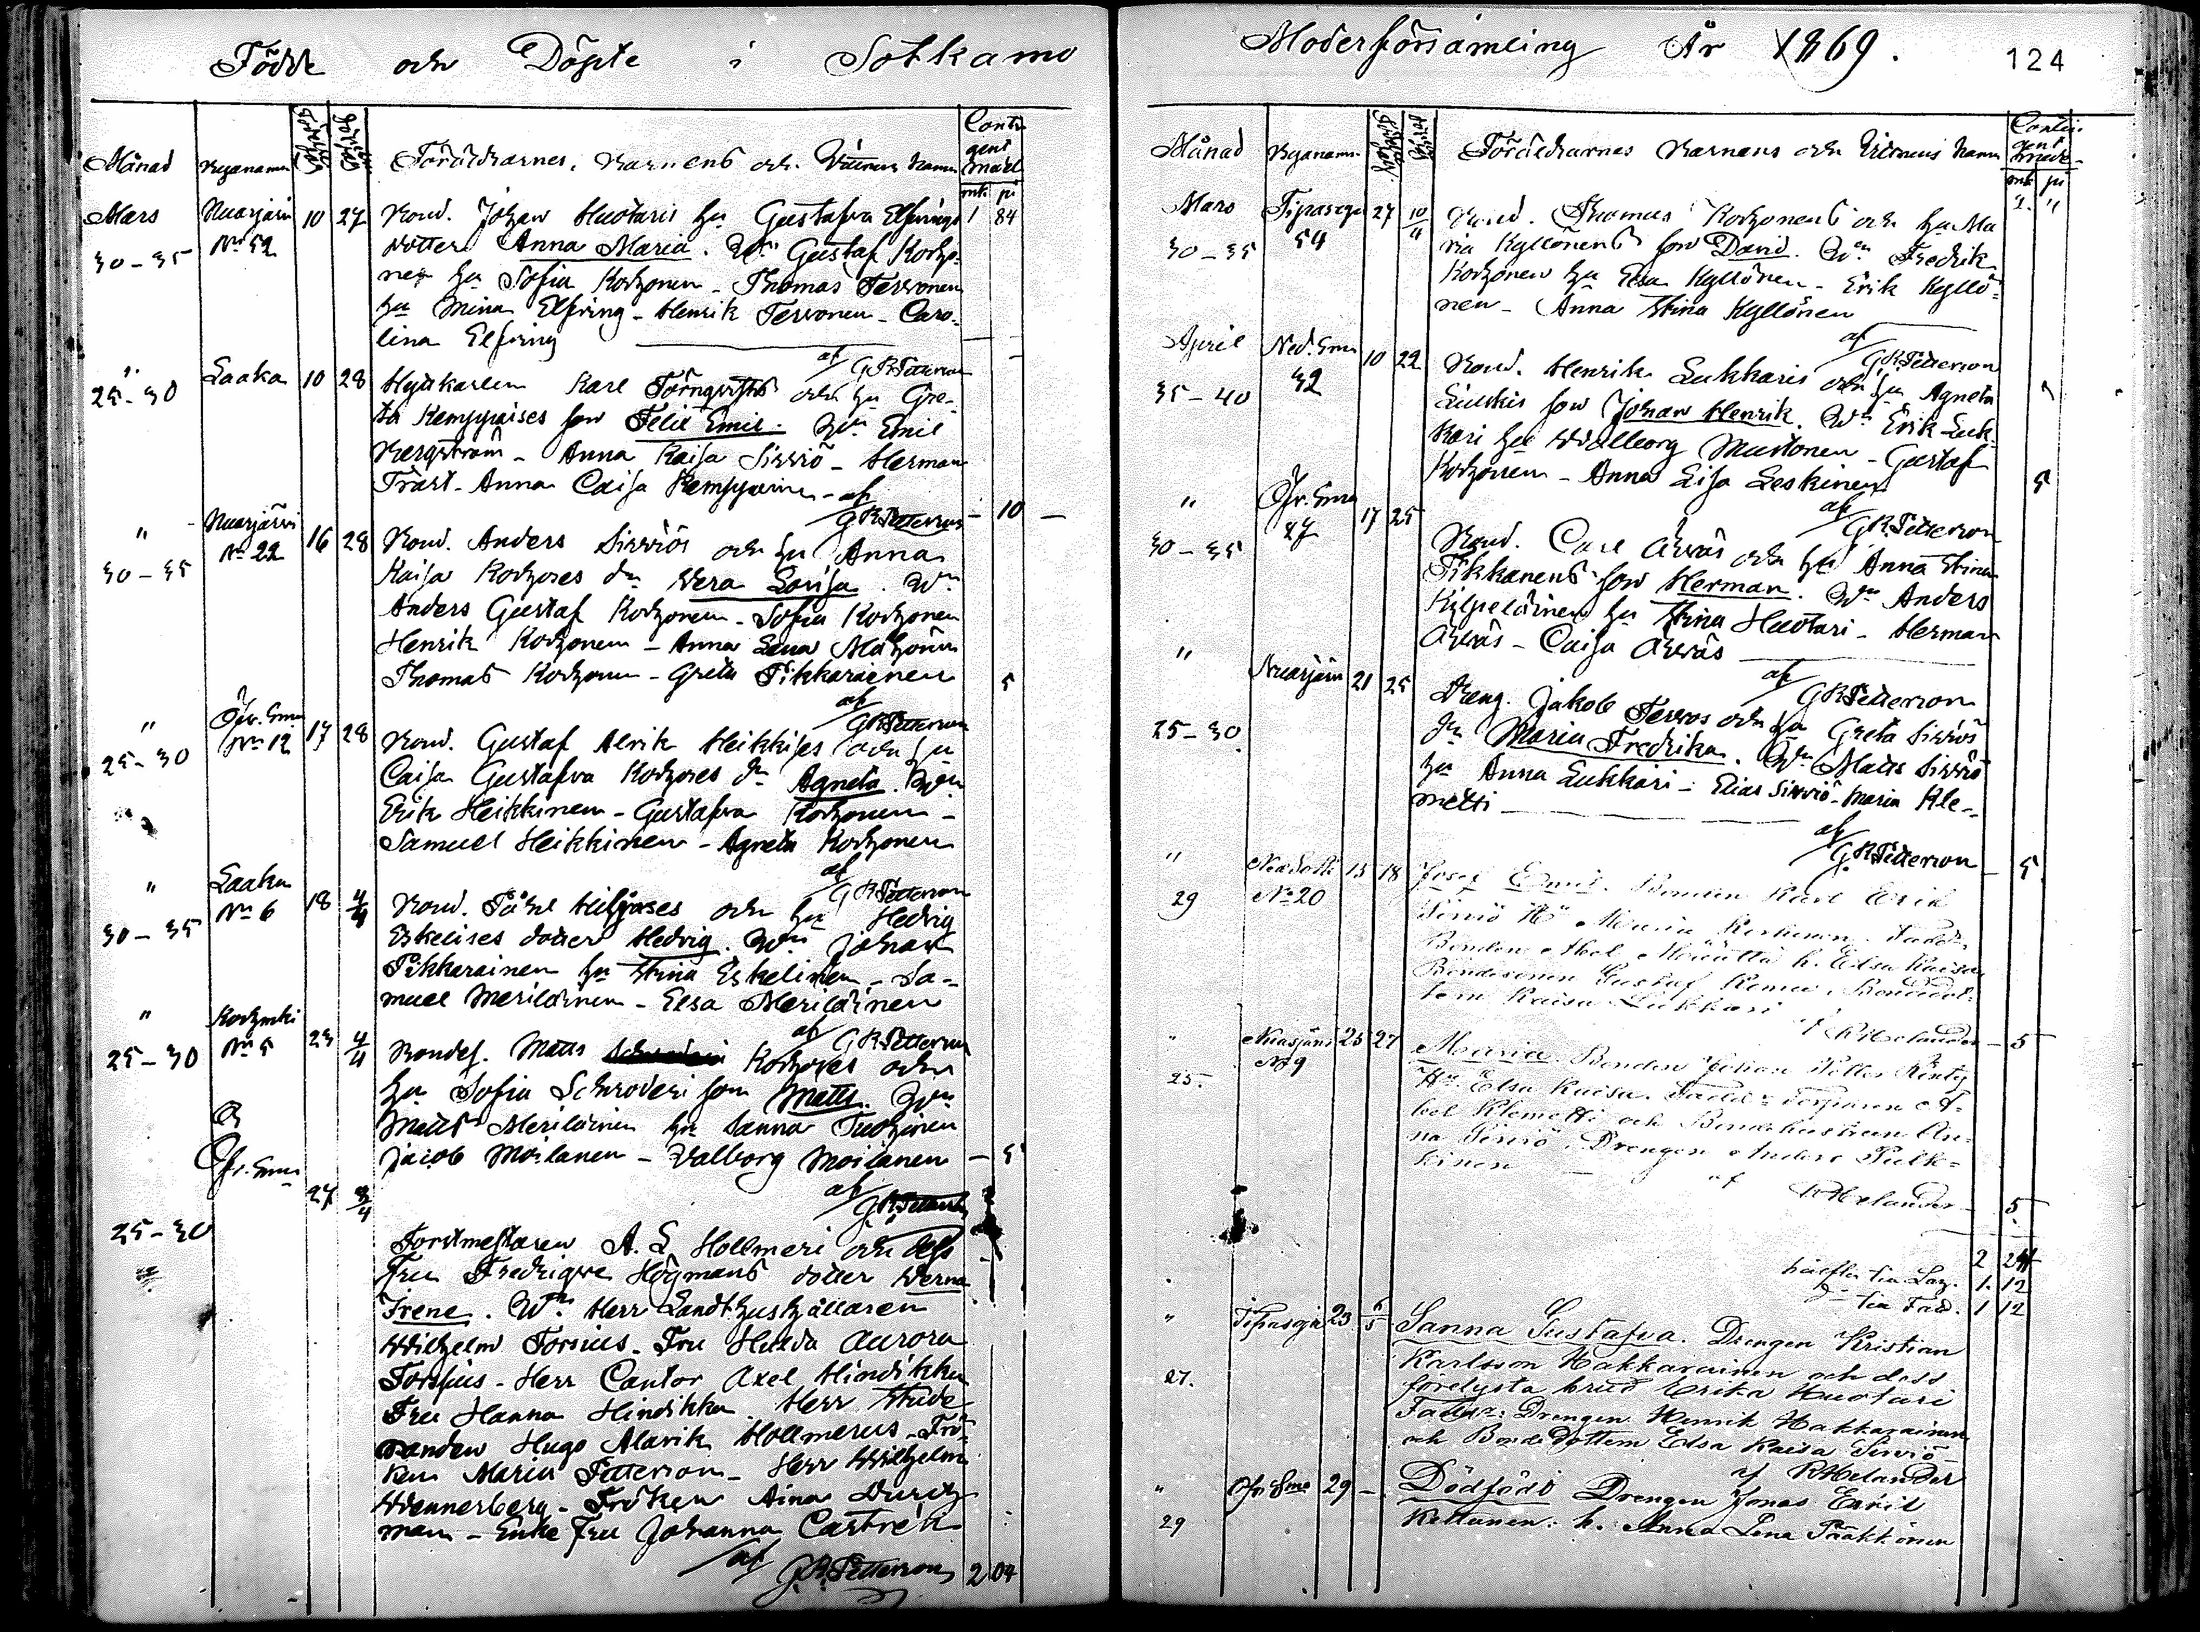 Födde och Döpte i Sotkamo
Månad Byanamn Föräldrarnes, Barnens och Vittnens Namn
Contin
gent
mk pi
Mars Nuasjärvi 10 27 Bond. Johan Huotaris hu Gustafva Elfrings 1 84
30-35 No 52 dotter Anna Maria. Wn Gustaf Korho-
nen hu Sofia Korhonen - Thomas Tervonen
hu Mina Elfving - Henrik Tervonen - Caro-
lina Elfving
af G R Petterson
" Laaka 10 28 Karl Törnqvists och hu Gre-
25-30 ta Kemppaises son Felix Emil. Wn Emil
Bergström - Anna Kaisa Sirviö - Herman
Träst - Anna Caisa Kemppainen - af
G R Petterson - 10 -
" Nuasjärvi 16 28 Bond. Anders Sirviös och hu Anna
30-35 No 22 Kaisa Korhoses dr Wera Lovisa. Wn
Anders Gustaf Korhonen - Sofia Korhonen
Henrik Korhonen - Anna Lena Mähönen
Thomas Korhonen - Greta Tikkarainen 5
af G R Petterson
" Öfr. Sma 17 28 Bond. Gustaf Alrik Heikkises och hu
25-30 No 12 Caisa Gustafva Korhoses dr Agneta. Wn
Erik Heikkinen - Gustafva Korhonen -
Samuel Heikkinen - Agneta Korhonen
af G R Petterson
" Laaka 18 4/4 Bond. Påhl Hiljases och hu Hedvig
30-35 No 6 Eskelises dotter Hedvig. Wn Johan
Pikkarainen hu Stina Eskelinen - Sa-
muel Meriläinen - Elsa Meriläinen
af G R Petterson
" No 5 23 4/4 Bondes. Matts Korhoses och
25-30 hu Sofia Schroderi son Matts. Wn
Matts Meriläinen hu Sanna Tuhkanen
Jacob Moilanen - Valborg Moilanen - 5
af G R Petterson
Öfr. Sma 27 8/4
25-30 Forstmästaren A. L Hollmeri och dess
Fru Fredrique Högmans dotter Werna
Irene. Wn Herr Landthushållaren
Wilhelm Forsius - Fru Hulda Aurora
Forsius - Herr Cantor Axel Hindikka
Fru Hanna Hindikka. Herr Stude
randen Hugo Alarik Hollmerus - Frö-
ken Maria Petterson - Herr Wilhelm
Wennerberg - Fröken Aina Durch
man - Enke Fru Johanna Castrén
af G. R. Petterson 2 04
Moderförsamling År 1869. 124
Månad Byanamn Föräldrarnes Barnens och Vittnens Namn
Contin
gent
mk pi
Mars Tipasoja 27 10/4 Bond. Thomas Korhonens och hu Ma 2. "
30-35 54 ria Kyllönens son David. Wn Fredrik
Korhonen hu Elsa Kyllönen - Erik Kyllö-
nen - Anna Stina Kyllönen
af G R Petterson
April Ned. Sma 10 22 Bond. Henrik Lukkaris och hu Agneta
35-40 32 son Johan Henrik. Wn Erik Luk-
kari hu Walborg Mustonen - Gustaf
Korhonen - Anna Lisa Leskinen 5
af G R Petterson
" Öfr. Sma 17 25 Bond. Carl Ahvas och hu Anna Stina
30-35 27 Tikkanens son Herman. Wn Anders
Kilpeläinen hu Stina Huotari - Herman
Ahvas - Caisa Ahvas
af G R Petterson
" Nuasjärvi 21 25 Dreng. Jakob Tervos och hu Greta Sirviös
25-30 dr Maria Fredrika. Wn Matts Sirviö
hu Anna Lukkari - Elias Sirviö - Maria Kle-
metti
af G R Petterson - 5
" Ned Sotk 15 18 Josef Emil. Bonden Karl Erik
29 No 20 Sirviö Hu Maria Korhonen. Fadd.
Bonden Abel Määttä h. Elsa Kaisa
Bondesonen Gustaf Bondedot-
tern Kaisa Lukkari
af R Helander - 5
" Nuasjärvi 25 27 Maria. Bonden Johan Petter
25. No 9 Hu Elsa Kaisa. Fadd. Torparen A-
bel Klemetti och Bondehustrun An-
na Sirviö. Drengen Anders Pulk-
kinen
af R Helander - 5
2 24
hälften till 1. 12
do till 1 12
" Tipasoja 23 6/5 Sanna Gustafva. Drengen Kristian
27. Karlsson Hakkarainen och dess
förelysta brud Erika Huotari
Faddr: Drengen Henrik Hakkarainen
och Bondedottern Elsa Kaisa Sirviö
af R Helander
" Öfr Sma 29 - Dödfödd Drengen Jonas Enkil
29 Kettunen. h. Anna Lena Pääkkönen